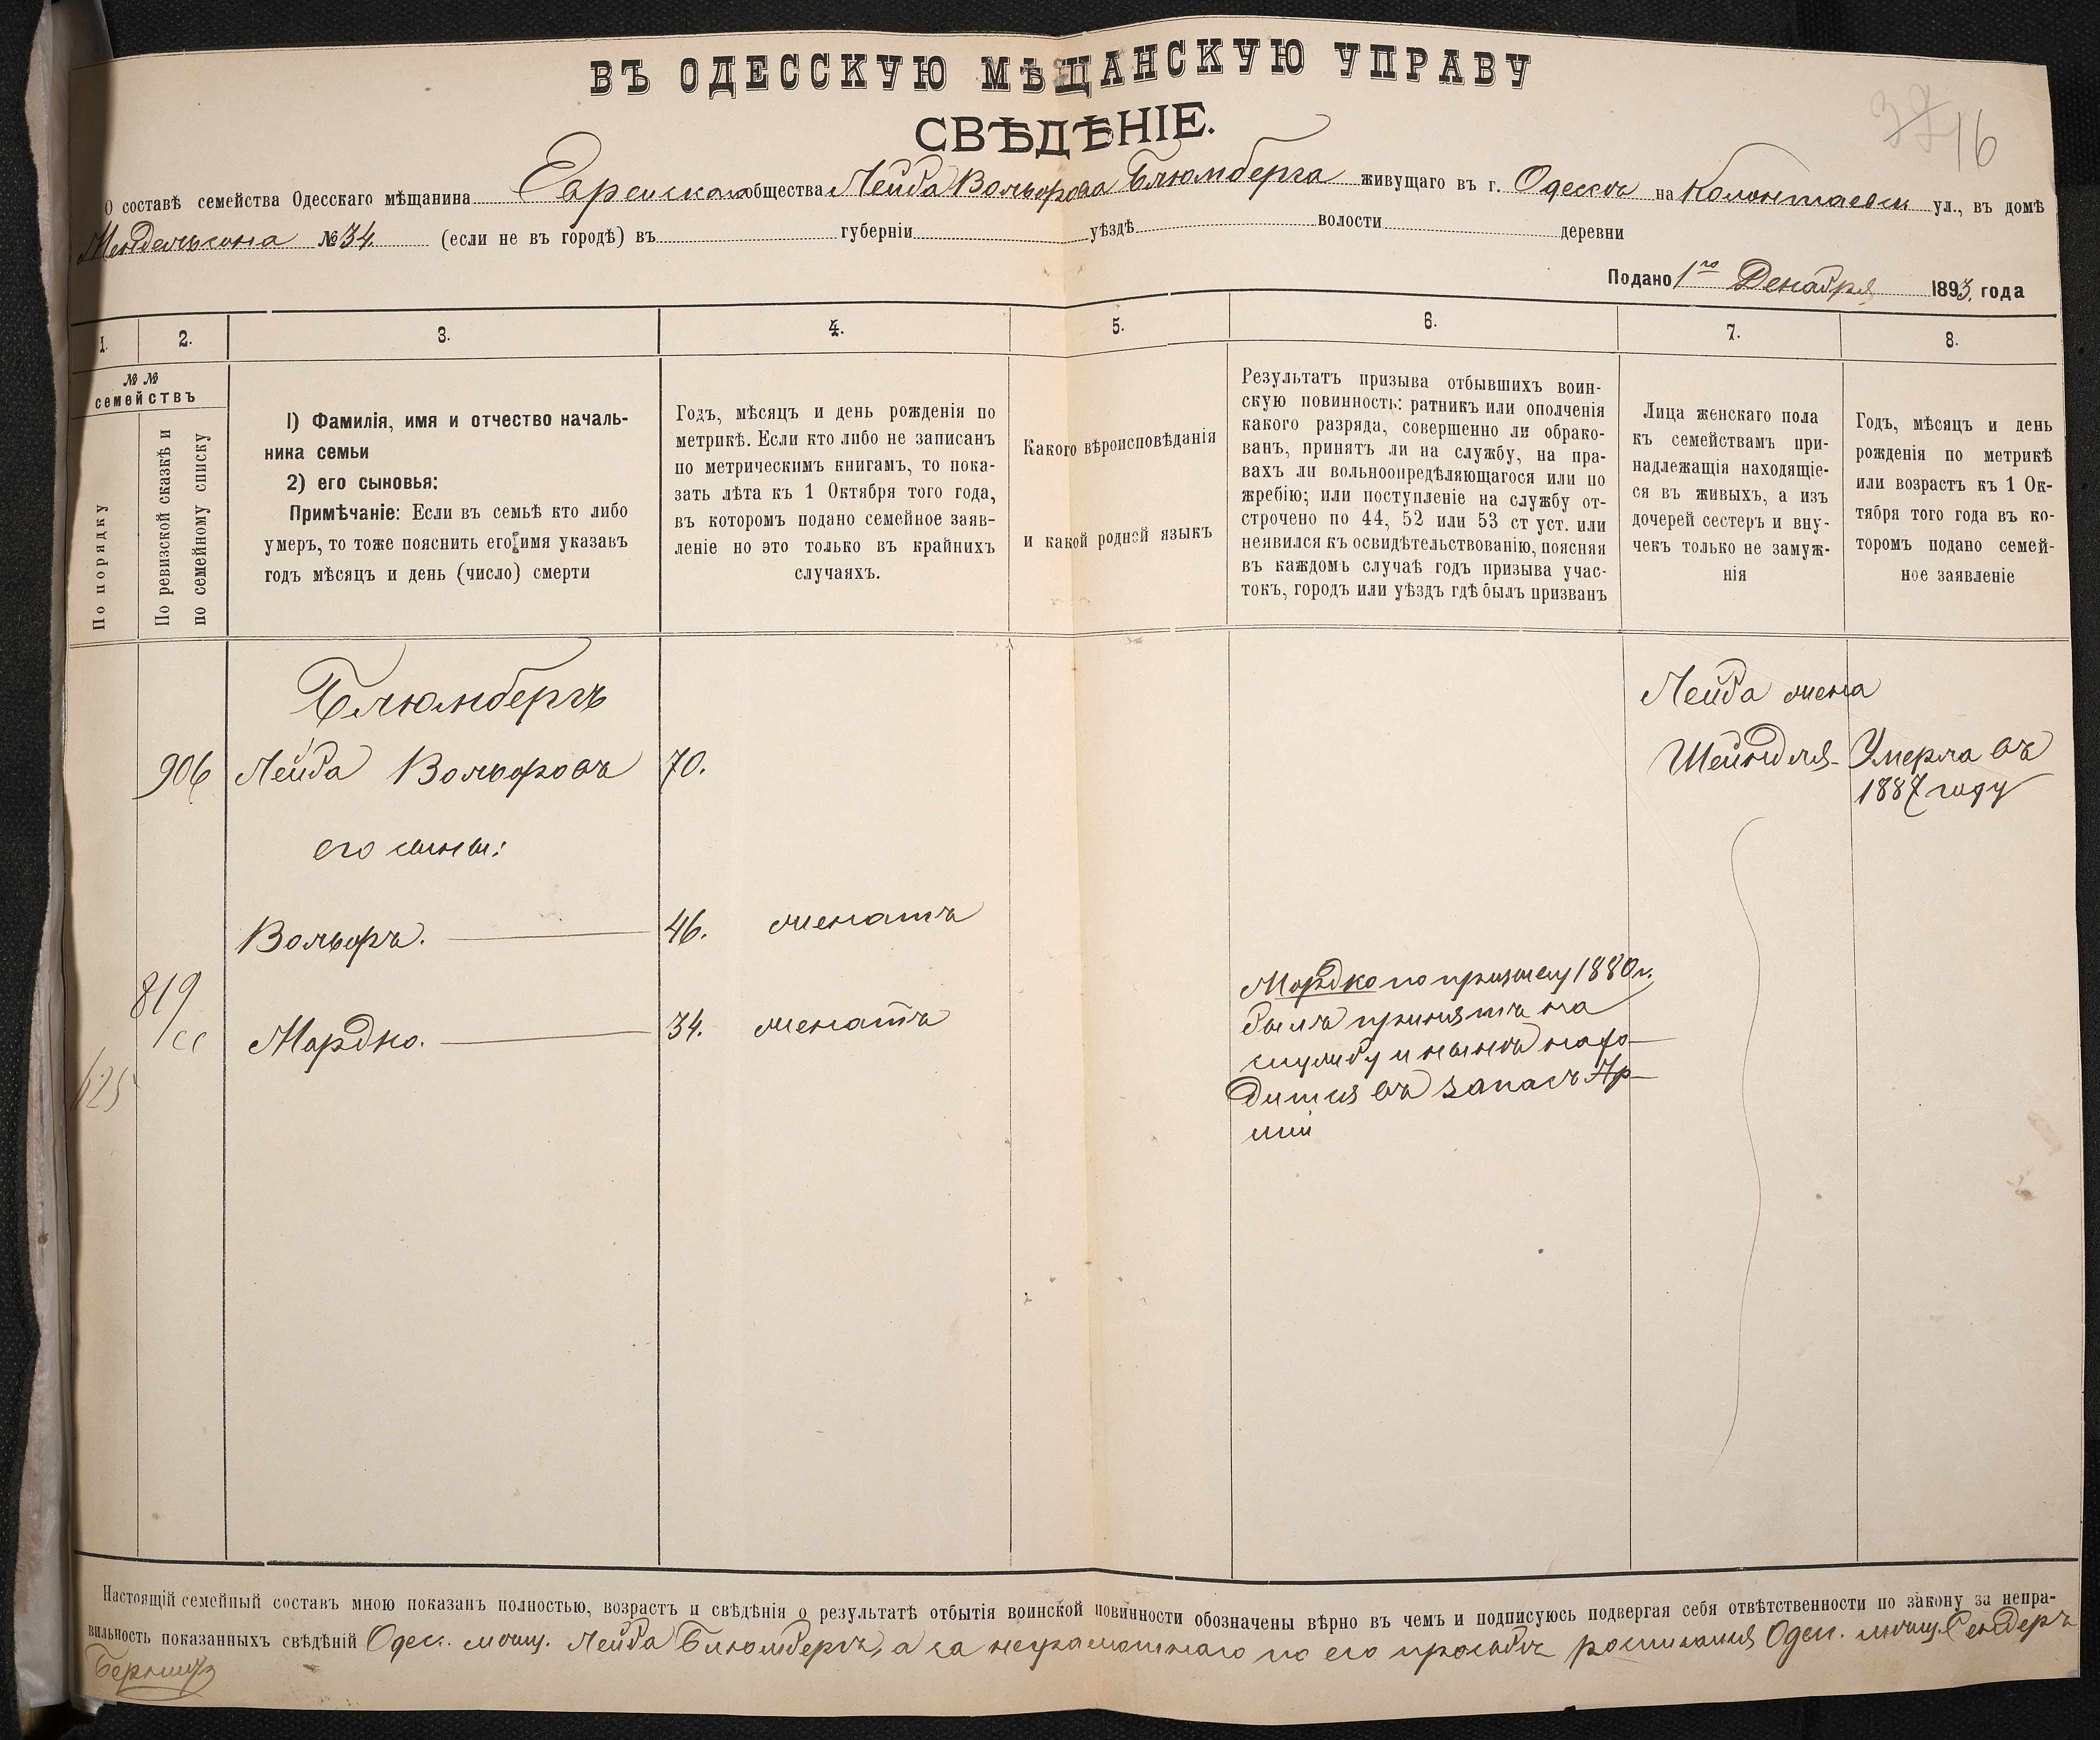 ВЪ ОДЕССКУЮ МѢЩАНСКУЮ УПРАВУ
СВѢДѢНІЕ.
16
О составѣ семейства Одесскаго мѣщанина Еврейскаго общества Лейба Вольфова Блюмберга живущаго въ г. Одессѣ на Колонтаевск ул., въ домѣ
Мендельсона №34. (если не въ городѣ) въ губерніи уѣздѣ волости деревни
Подано 1го Декабря 1893. года
1. 2. 3. 4. 5. 6. 7. 8.
№ №
семействъ
По порядку
По ревизской сказкѣ и
по семейному списку
1) Фамилія, имя и отчество началь-
ника семьи
2) его сыновья:
Примѣчаніе: Если въ семьѣ кто либо
умеръ, то тоже пояснить его имя указавъ
годъ мѣсяцъ и день (число) смерти
Годъ, мѣсяцъ и день рожденія по
метрикѣ. Если кто либо не записанъ
по метрическимъ книгамъ, то пока-
зать лѣта къ 1 Октября того года,
въ которомъ подано семейное заяв-
леніе но это только въ крайнихъ
случаяхъ.
Какого вѣроисповѣданія
и какой родной языкъ
Результатъ призыва отбывшихъ воин-
скую повинность: ратникъ или ополченія
какого разряда, совершенно ли обрако-
ванъ, принятъ ли на службу, на пра-
вахъ ли вольноопредѣляющагося или по
жребію; или поступленіе на службу от-
строчено по 44, 52 или 53 ст уст. или
неявился къ освидѣтельствованію, поясняя
въ каждомъ случаѣ годъ призыва учас-
токъ, городъ или уѣздъ гдѣ былъ призванъ
Лица женскаго пола
къ семействамъ при-
надлежащія находящіе-
ся въ живыхъ, а изъ
дочерей сестеръ и вну-
чекъ только не замуж-
нія
Годъ, мѣсяцъ и день
рожденія по метрикѣ
или возрастъ къ 1 Ок-
тября того года въ ко-
торомъ подано семей-
ное заявленіе
Блюмбергъ
906 Лейба Вольфовъ 70.
его сыны:
Вольфъ. 46. женатъ
819
Мордко. 34. женатъ
625
Мордко по призыву 1880 г.
былъ принятъ на
службу и нынѣ нахо-
дится въ запасъ Ар-
міи
Лейба жена
Шейндля - Умерла въ
1887 году
Настоящій семейный составъ мною показанъ полностью, возрастъ и свѣдѣнія о результатѣ отбытія воинской повинности обозначены вѣрно въ чемъ и подписуюсь подвергая себя отвѣтственности по закону за непра-
вильность показанныхъ свѣдѣній Одес. мѣщ. Лейба Блюмбергъ, а за неграмотнаго по его просьбѣ росписался Одес. мѣщ. Сендеръ